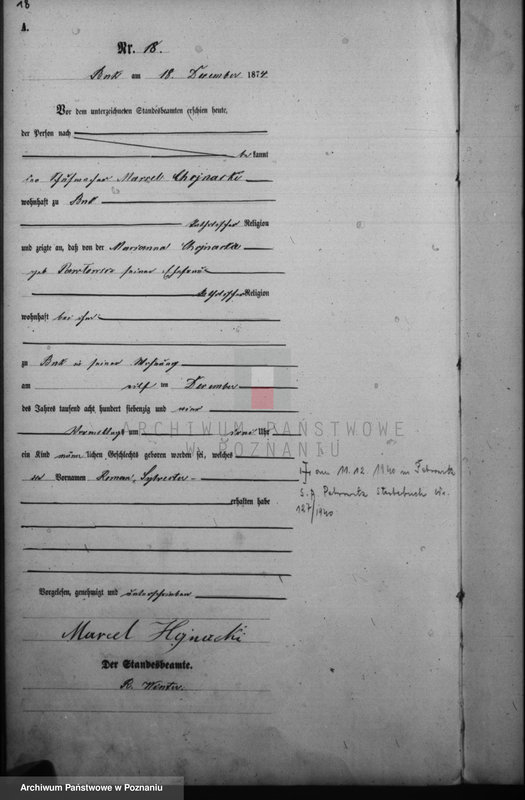 18
A.
Nr. 18.
Buk am 18. December 1874.
Vor dem unterzeichneten Standesbeamten erschien heute,
der Person nach
bekannt
der Schuhmacher Marcel Chojnacki
wohnhaft zu Buk
katholischer Religion
und zeigte an, daß von der Marianna Chojnacka
geb Pawłowicz seiner Ehefrau
katholischer Religion
wohnhaft bei ihm
zu Buk in seiner Wohnung
am ten December
des Jahres tausend acht hundert siebenzig und vier
Vormittags um Uhr
ein Kind männlichen Geschlechts geboren worden sei, welches
Vornamen Roman, Sylvester
erhalten habe
Vorgelesen, genehmigt und unterschrieben
Marcel Hojnacki
Der Standesbeamte.
R. Winter.
am 11.12.1940 in
S.A. Sterbebuch Nr.
127/1940
ARCHIWUM PAŃSTWOWE
W POZNANIU
Archiwum Państwowe w Poznaniu